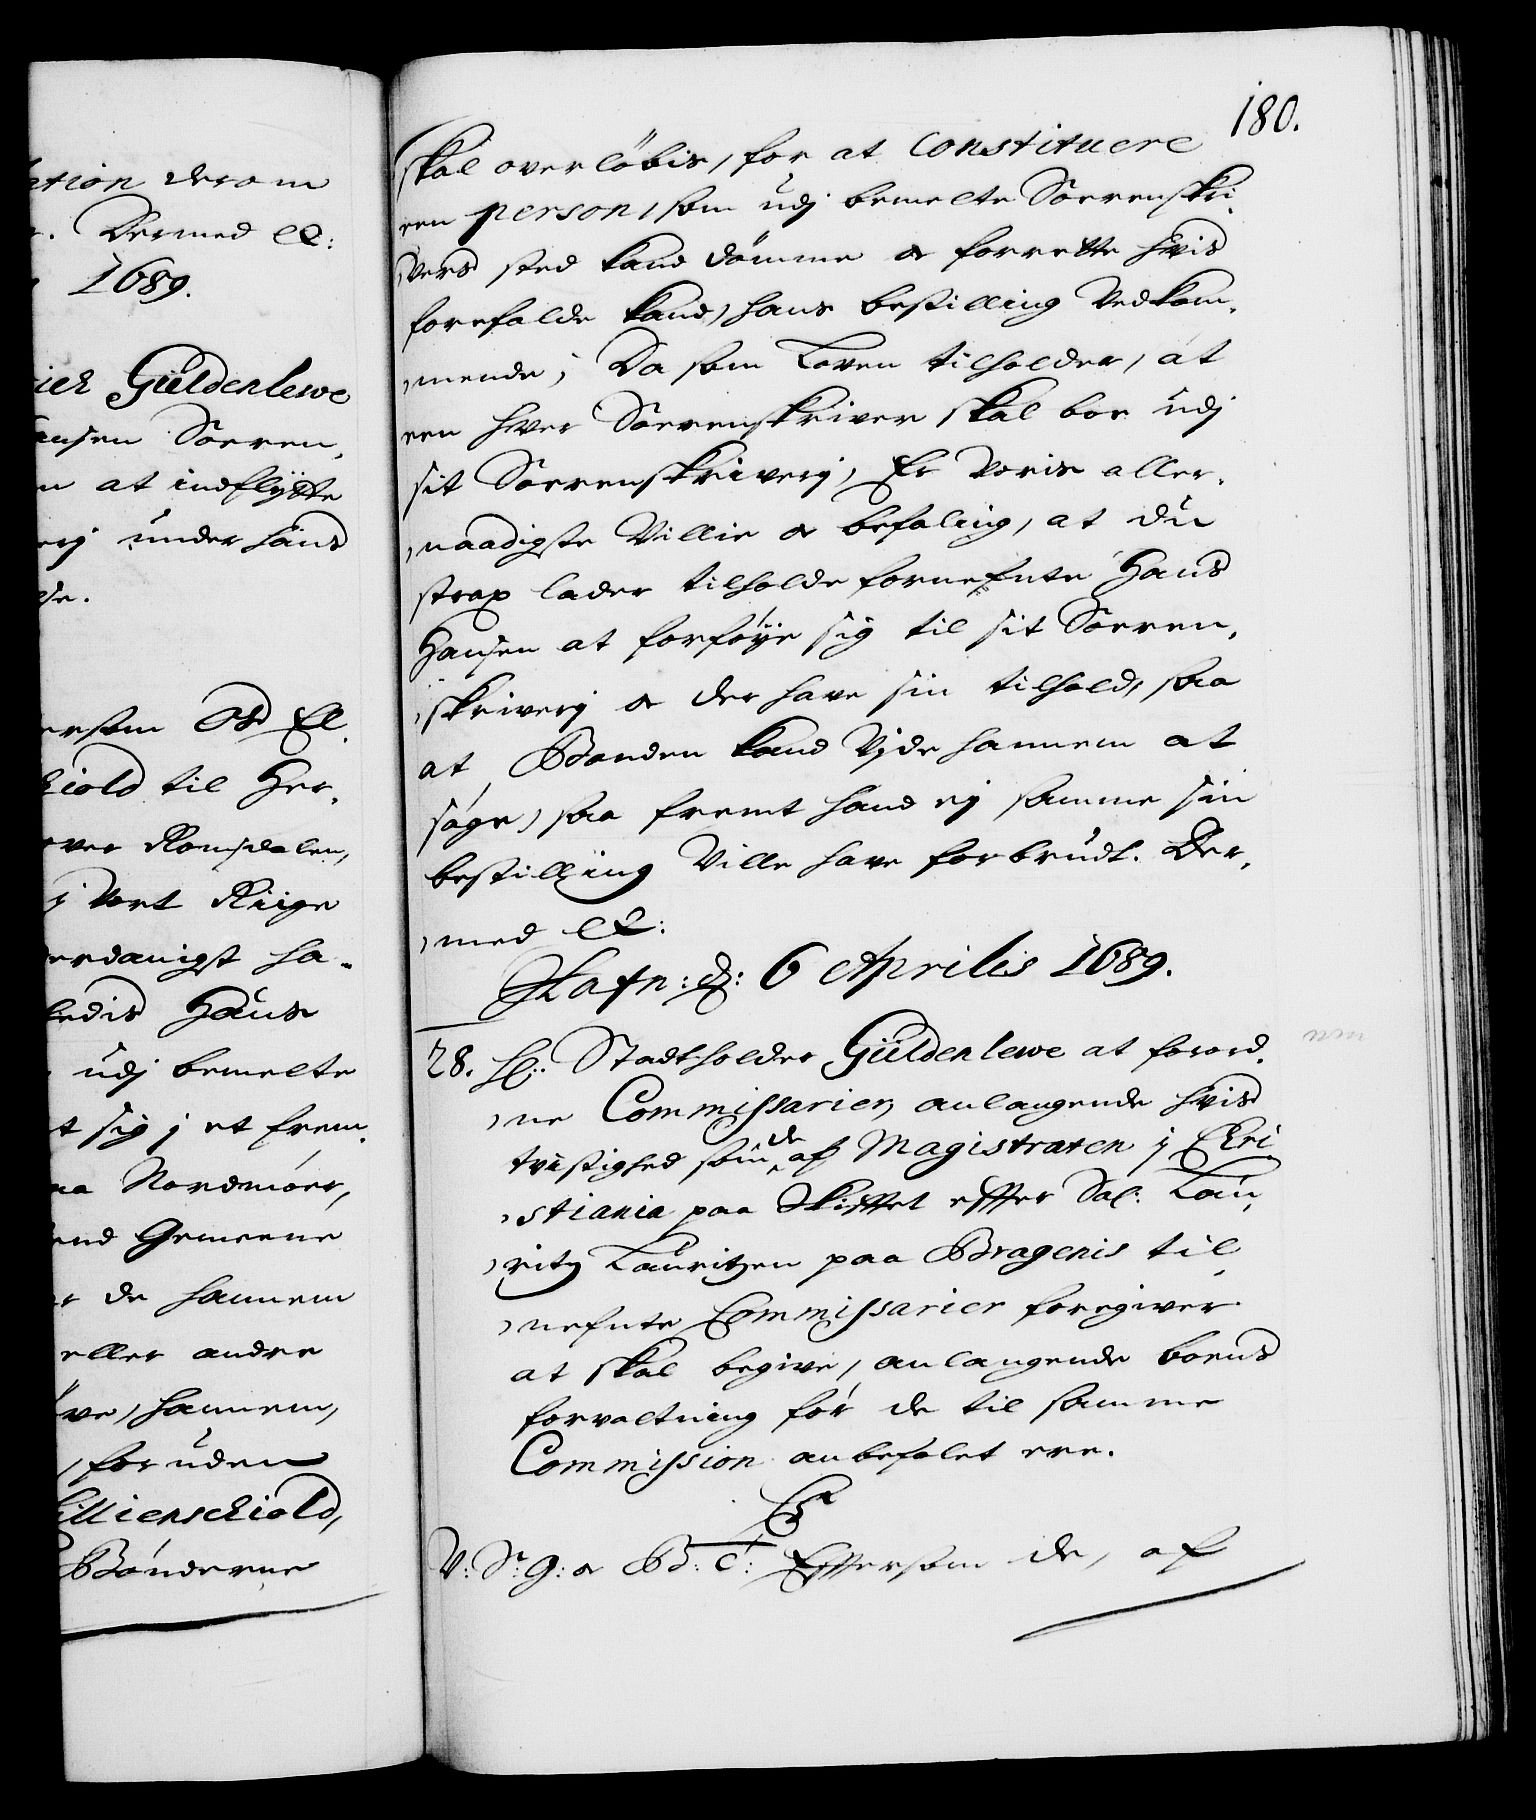 ation derom
Dermed etc:
1689.
rich Güldenlewe
ansen Soeren,
n at indflÿtte
erj under hans
de.
ersom Os El.
kiold til Her,
over Romsdalen,
j Vort Riige
derdanigst ha-
ledis Hans
udj bemelte
t sig j et frem,
aa Nordmøer,
end Gemeene
r de hannem
eller andre
ve, hannem,
foruden
Lillienschiold,
Bønderne
180.
skal overløbis, for at Constituere
een person, som udj bemelte Soerenskri,
,vers sted kand dømme oc forrette hvis
forefalde kand, hans bestilling Vedkom,
,mende; Da som Loven tilholder, at
een hver Soerenskriver skal boe udj
sit Soerenskriverj, Er Voris aller,
,naadigste Villie oc befaling, at du
strax lader tilholde fornefnte Hans
Hansen at forføÿe sig til sit Soeren,
,skriverj oc der have sin tilhold, saa
at Bonden kand Vide hannem at
søge, saa fremt hand ej samme sin
bestilling Ville have forbrudt. Der,
,med etc:
Hafn: d: 6 Aprilis 1689.
28. H: Stadtholder Güldenlewe at forord,
,ne Commissarier, anlangende hvis
tvistighed som de af Magistraten j Chri,
,stiania paa Skiftet effter Sal: Lau,
,ritz Lauritzen paa Bragenis til,
,nefnte Commissarier foregiver
at skal begive, anlangende boens
forvaltning før de til samme
Commission anbefalet ere.
C5
V: S: G: oc B: C: Effersom de, af